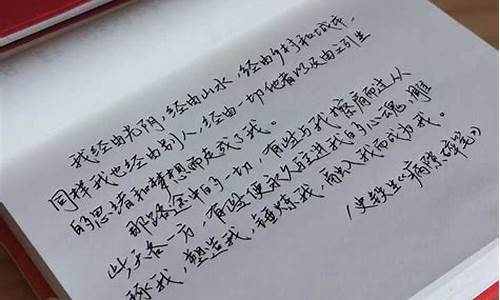 我经由光阴，经由山水，经由乡村和城市，
同样我也经由别人，经由一切他者以及由之引生
的思绪和梦想而走成了我。
那路途中的一切，有些与我擦肩而过从
此天各一方，有些便永久驻进我的心魂，雕
琢我，塑造我，锤炼我，融入我而成为我。
/史铁生《病隙碎笔》